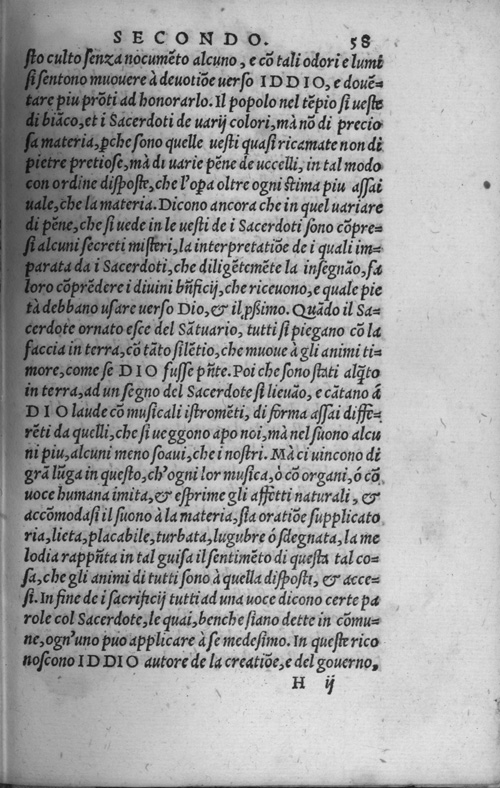 SECONDO. 58
sto culto senza nocumẽto alcuno, e cõ tali odori e lumi
si sentono muouere à deuotiõe uerso IDDIO, e douẽ=
tare piu prõti ad honorarlo. Il popolo nel tẽpio si ueste
di biãco, et i Sacerdoti de uarij colori, mà nõ di precio
sa materia, pche sono quelle uesti quasi ricamate non di
pietre pretiose, mà di uarie pẽne de uccelli, in tal modo
con ordine disposte, che l'opa oltre ogni stima piu assai
uale, che la materia. Dicono ancora che in quel uariare
di pẽne, che si uede in le uesti de i Sacerdoti sono cõpre=
si alcuni secreti misteri, la interpretatiõe de i quali im=
parata da i Sacerdoti, che diligẽtemẽte la insegnão, fa
loro cõprẽdere i diuini bñficij, che riceuono, e quale pie
tà debbano usare uerso Dio, & il pßimo. Quãdo il Sa=
cerdote ornato esce del Sãtuario, tutti si piegano cõ la
faccia in terra, cõ tãto silẽtio, che muoue à gli animi ti=
more, come se DIO fusse pñte. Poi che sono stati alq̃to
in terra, ad un segno del Sacerdote si lieuão, e cãtano á
DIO laude cõ musicali istromẽti, di forma assai diffe=
rẽti da quelli, che si ueggono apo noi, mà nel suono alcu
ni piu, alcuni meno soaui, che i nostri. Mà ci uincono di
grã lũga in questo, ch'ogni lor musica, ò cõ organi, ó cõ
uoce humana imita, & esprime gli affetti naturali, &
accõmodasi il suono à la materia, sia oratiõe supplicato
ria, lieta, placabile, turbata, lugubre ó sdegnata, la me
lodia rappñta in tal guisa il sentimẽto di questa tal co=
sa, che gli animi di tutti sono à quella disposti, & acce=
si. In fine de i sacrificij tutti ad una uoce dicono certe pa
role col Sacerdote, le quai, benche siano dette in cõmu=
ne, ogn'uno puo applicare à se medesimo. In queste rico
noscono IDDIO autore de la creatiõe, e del gouerno,
H ij